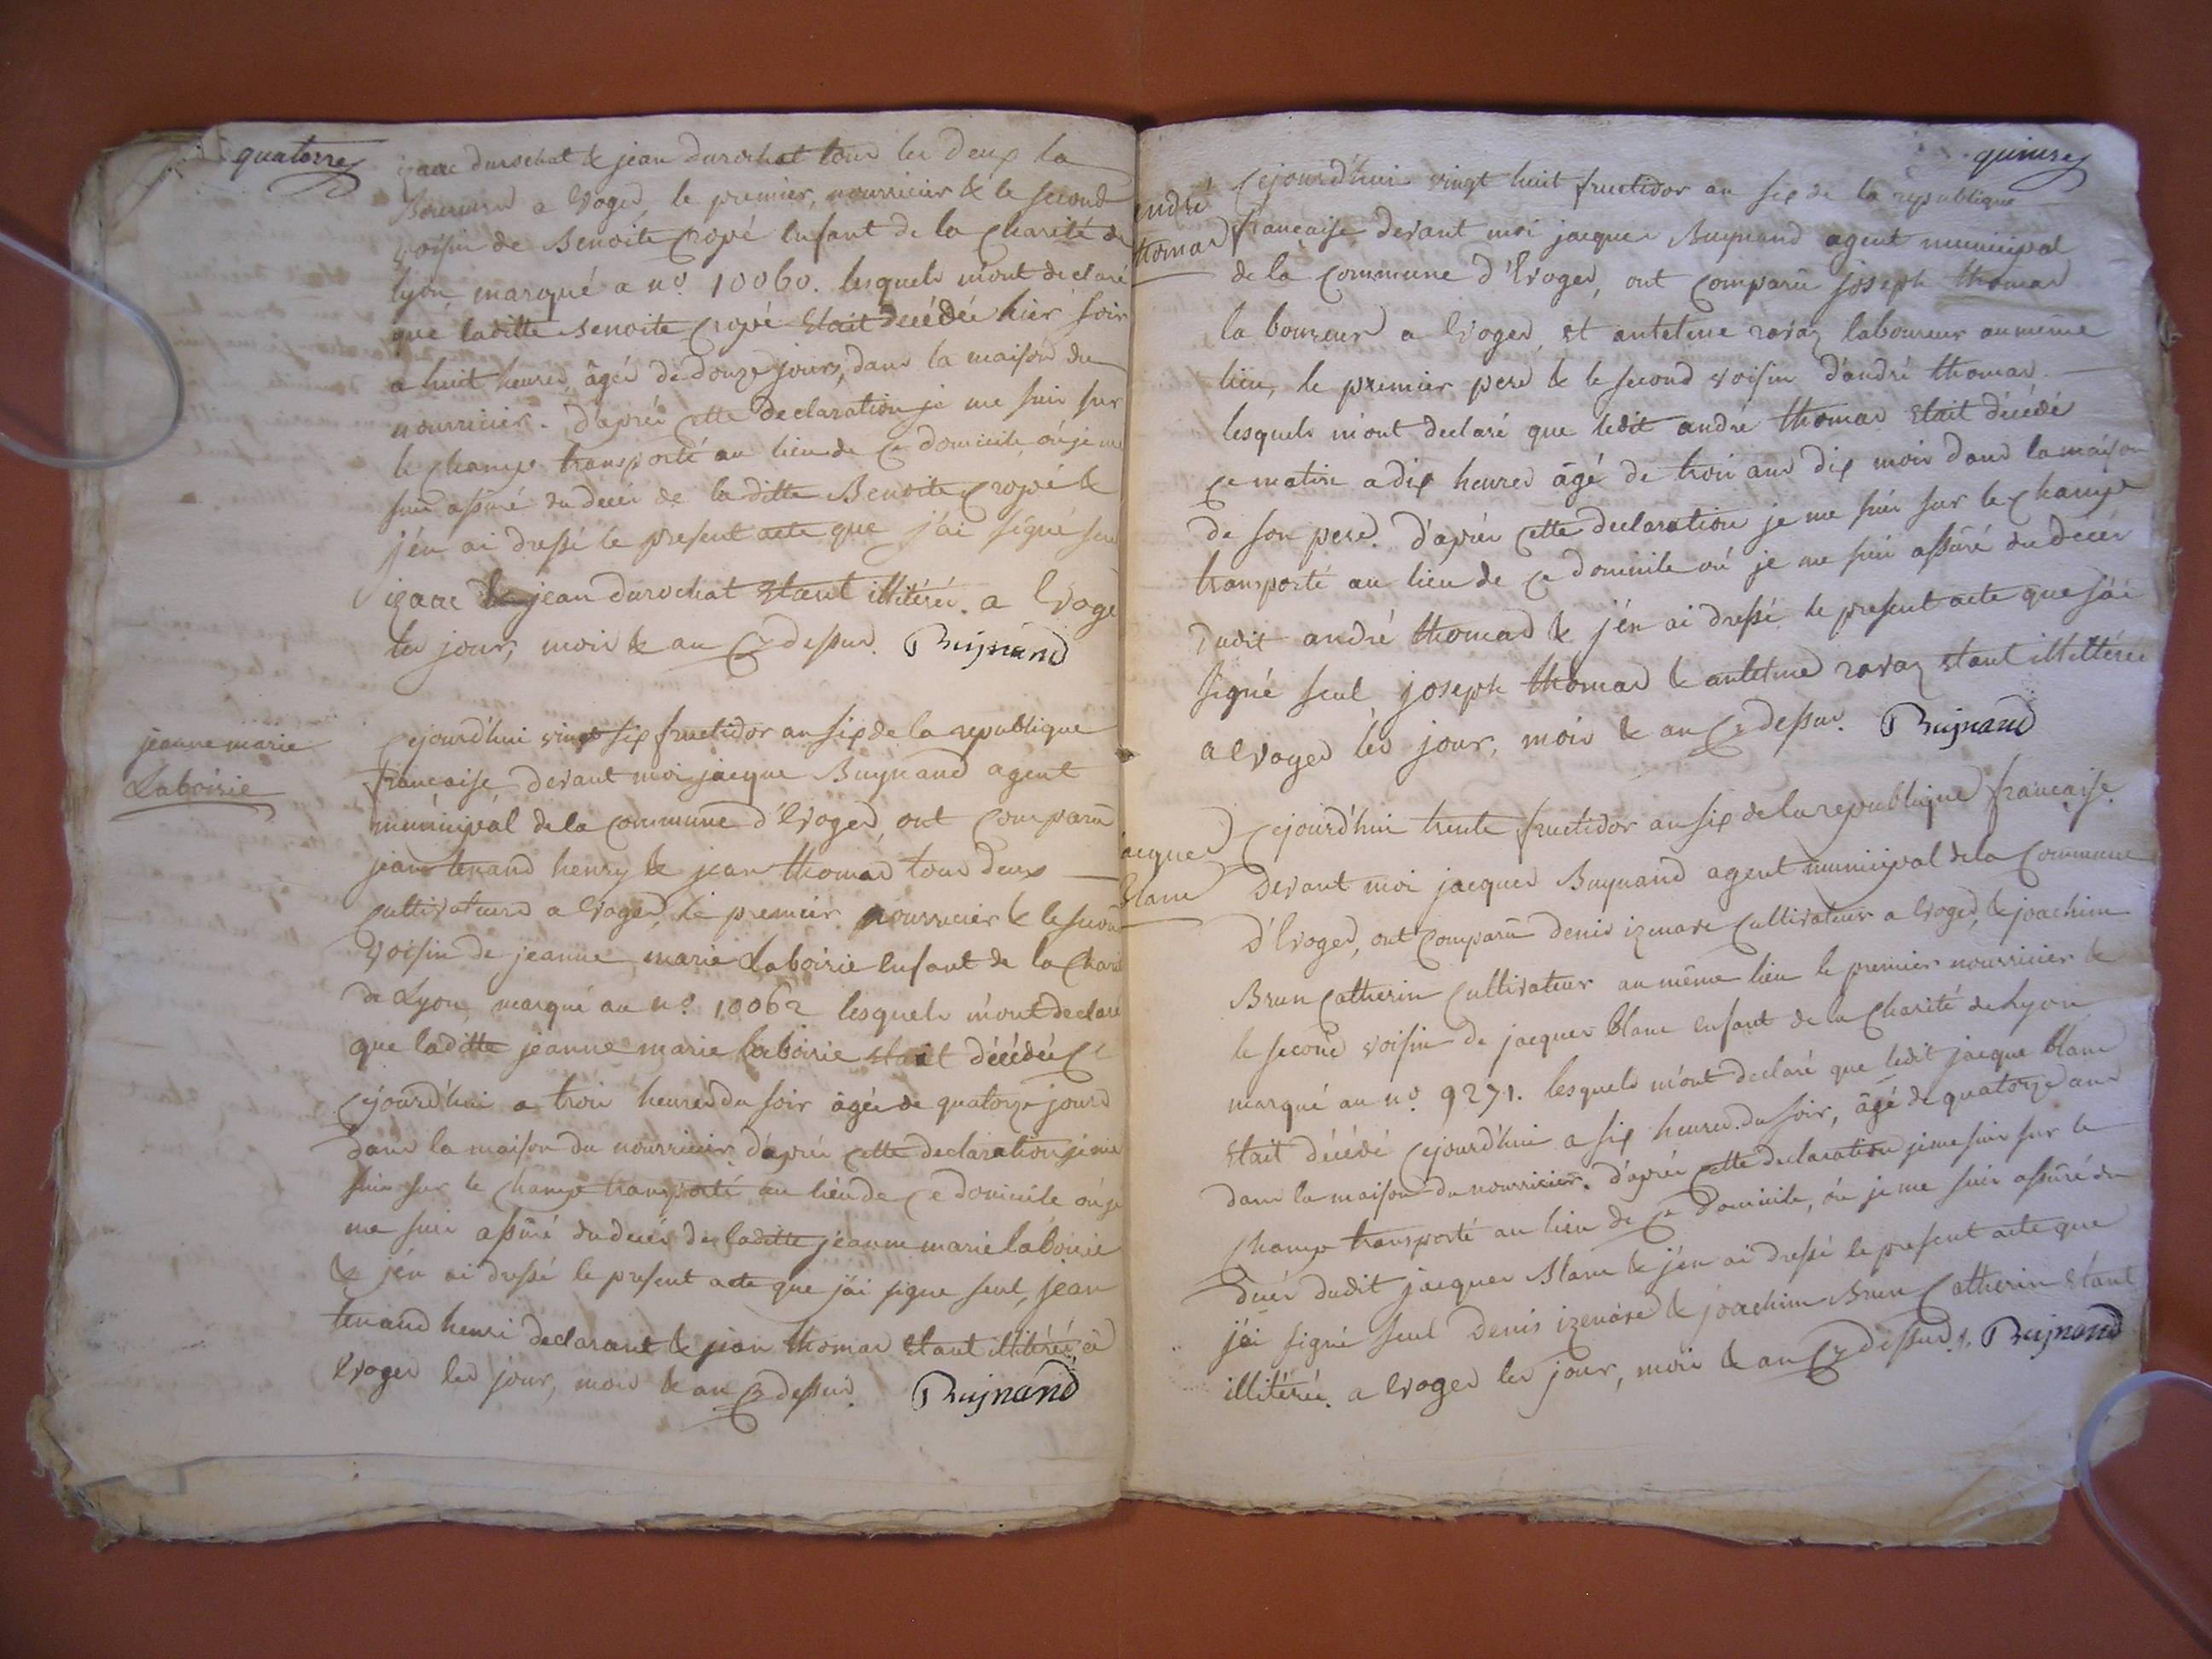 quatorze
izaac durochat & jean durochat tous les deux la
Boureurs a Evoges, le premier, nourricier & le second
voisin de Benoite Cropé enfant de la Charité de
lyon marqué a n.º 10060. lesquels m'ont declaré
que laditte Benoite Cropé était décédée hier soir
a huit heures, âgée de douze jours, dans la maison du
nourricier. d'après cette declaration je me suis sur
le champs transporté au lieu de ce domicile, ou je me
suis assuré du decès de laditte Benoite Cropé &
j'en ai dressé le present acte que j'ai signé seul
izaac & jean durochat étant illitérés. a Evoge
les jour, mois & an Cy dessus. Buynand
jeanne marie
Laboisie
Cejourd'hui vingt six fructidor an six de la republique
francaise, devant moi jacque Buynand agent
municipal de la commune d'Evoges, ont Comparu
jean tenand henry & jean thomas tous deux
Cultivateurs a Evoges, le premier nourricier & le second
Voisin de jeanne marie Laboisie enfant de la Charité
de Lyon marqué au n.º 10062 lesquels m'ont declaré
que laditte jeanne marie laboisie était décédée
Cejourd'hui a trois heures du soir âgée de quatorze jours
dans la maison du nourricier. d'après cette declaration je me
suis sur le champs transporté au lieu de ce domicile, où je
me suis assuré du decès de laditte jeanne marie laboisie
& j'en ai dressé le present acte que j'ai signe seul, jean
tenand henri declarant & jean thomas étant illitérés. a
Evoges les jour, mois & an Cy dessus. Buynand
quinze
andré
thomas
Cejourd'hui vingt huit fructidor an six de la republique
francaise, devant moi jacques Buynand agent municipal
de la Commune d'Evoges, ont Comparu joseph thomas
la boureur a Evoges, et antelme ravaz laboureur au même
lieu, le premier pere & le second voisin d'andré thomas.
lesquels m'ont declaré que ledit andré thomas était décédé
ce matin a dix heures âgé de trois ans dix mois dans la maison
de son pere. d'après cette declaration je me suis sur le champs
transporté au lieu de ce domicile où je me suis assuré du decès
dudit andré thomas & j'en ai dressé le present acte que j'ai
signé seul joseph thomas & antelme ravaz étant illittérés
a Evoges les jour, mois & an Cy dessus. Buynand
jacques
Blanc
Cejourd'hui trente fructidor an six de la republique francaise.
Devant moi jacques Buynand agent municipal de la Commune
d'Evoges, ont Comparu denis izenare Cultivateur a Evoges, & joachim
Brun Catherin Cultivateur au même lieu le premier nourricier &
le second voisin de jacques blanc enfant de la Charité de lyon
marqué au n.º 9271. lesquels m'ont declaré que ledit jacque blanc
était décédé Cejourd'hui a six heures du soir, âgé de quatorze ans
dans la maison du nourricier. d'après cette declaration je me suis sur le
champs transporté au lieu de ce domicile, ou je me suis assuré du
decès dudit jacques Blanc & j'en ai dressé le present acte que
j'ai signé seul Denis izenare & joachim Brun Catherin étant
illitérés. a Evoges les jour, mois & an Cy dessus. Buynand